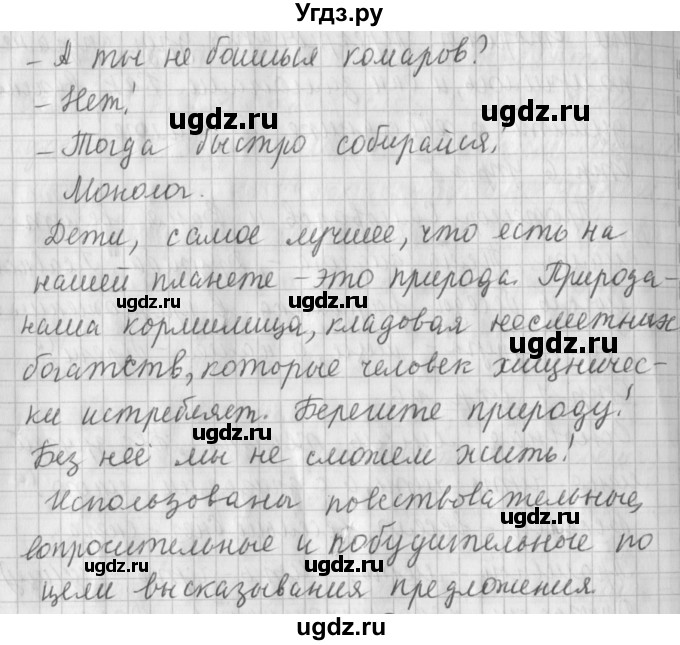 Угдз.ру
- А ты не боишься комаров?
- Нет!
ugdz.ru ugdz.ru
- Тогда быстро собирайся!
Монолог.
Дети, самое лучшее, что есть на
нашей планете - это природа. Природа-
ugdz.ru ugdz.ru
наша кормилица, кладовая несметных
ugdz.ru
богатств, которые человек хищничес-
ки истребляет. Берегите природу!
ugdz.ru
Без неё мы не сможем жить!
Использованы повествовательные,
ugdz.ru
вопросительные и побудительные по
ugdz.ru ugdz.ru
цели высказывания предложения.
ugdz.ru